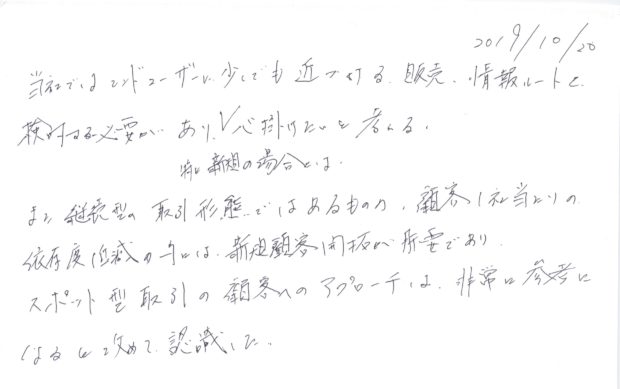 2019/10/20
当社ではエンドユーザーに少しでも近づける、販売、情報ルートを
検討する必要があり、心掛けたいと考える。
特に新規の場合には、
また継続型の取引形態ではあるものの、顧客1社当たりの
依存度低減の為には、新規顧客開拓が必要であり
スポット型取引の顧客へのアプローチは、非常に参考に
なると改めて認識した。